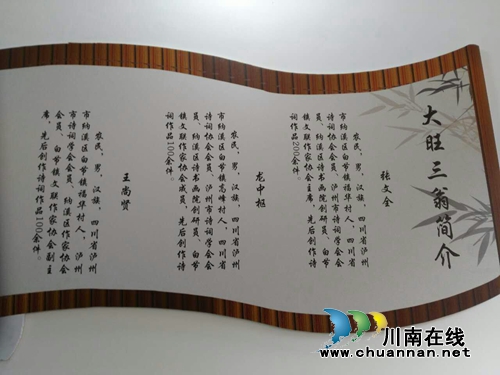 大旺三翁简介
张文全
农民，男，汉族，四川省泸州
市纳溪区白节镇福华村人，四川省
诗词协会会员、泸州市诗词学会会
员、纳溪区诗书画院创研员、白节
镇文联作家协会会员，先后创作诗
词作品200余件。
龙中枢
农民，男，汉族，四川省泸州
市纳溪区白节镇高峰村人，四川省
诗词协会会员、泸州市诗词学会会
员、纳溪区诗书画院创研员、白节
镇文联作家协会成员，先后创作诗
词作品100余件。
王尚贤
农民，男，汉族，四川省泸州
市纳溪区白节镇福华村人，泸州
市诗词学会会员、纳溪区作家协会
会员、白节镇文联作家协会副主
席，先后创作诗词作品100余件。
川南在线
www.chuannan.net